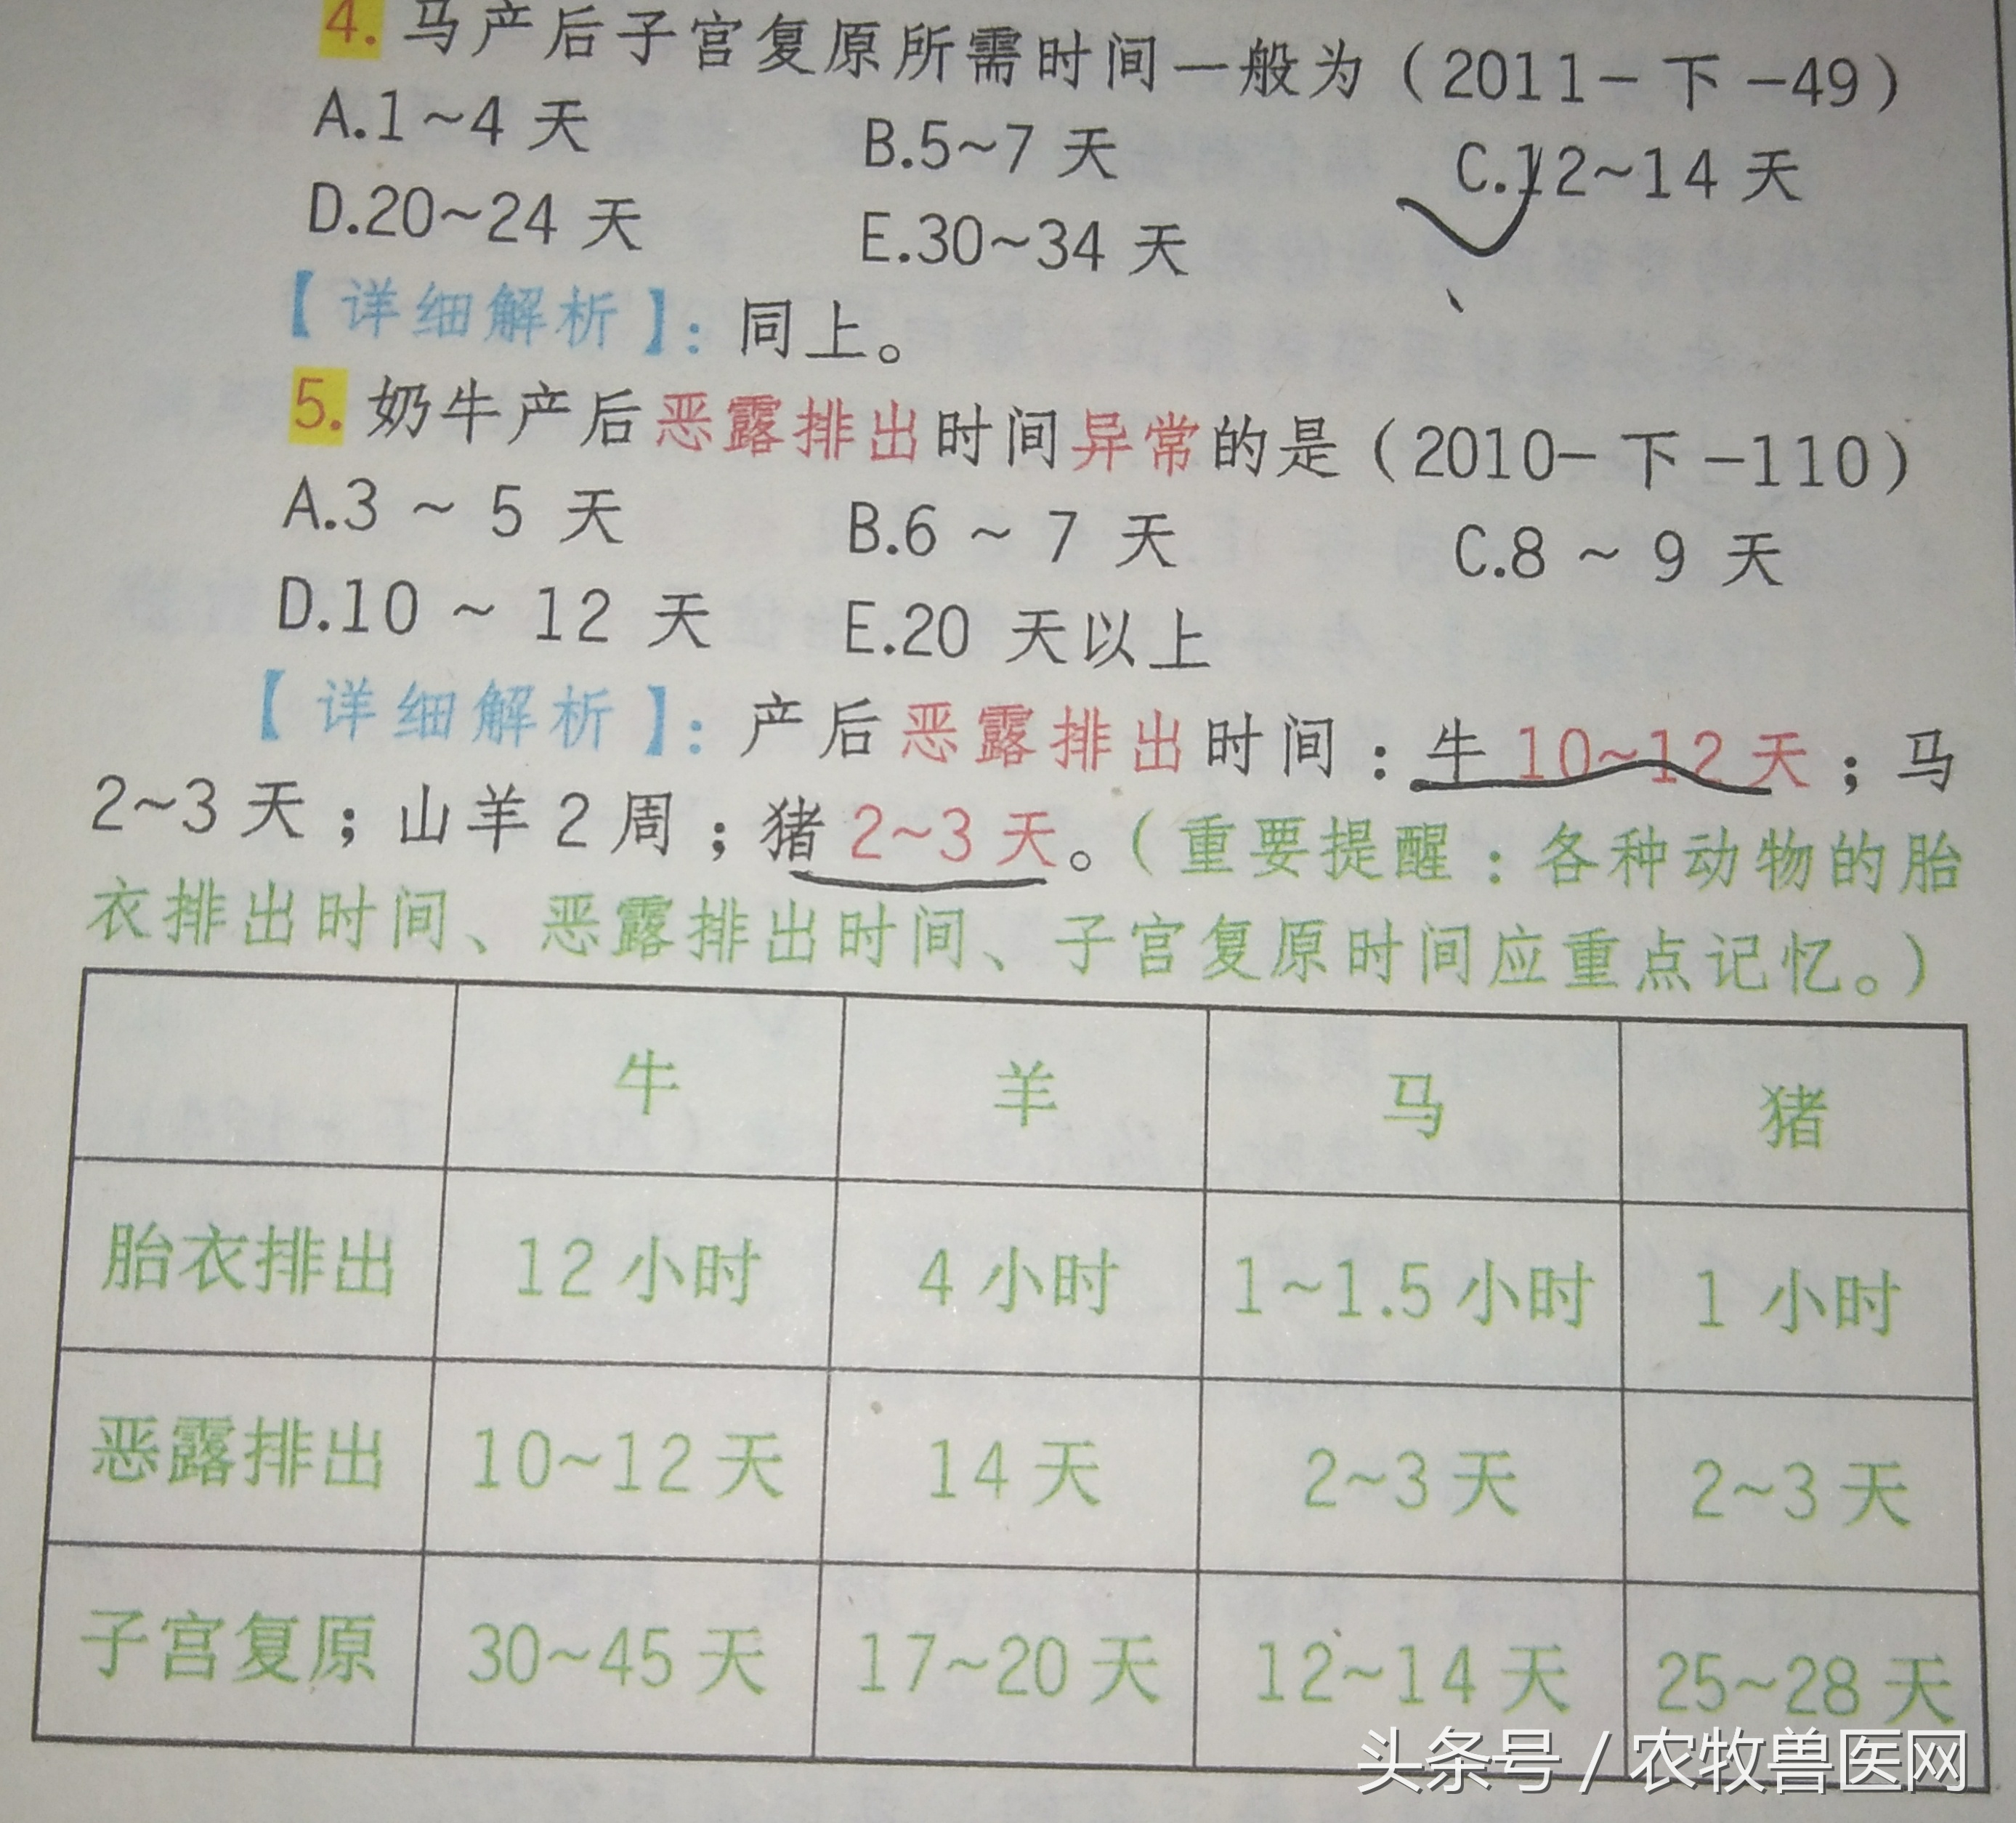 4. 马产后子宫复原所需时间一般为（2011-下-49）
A.1~4 天 B.5~7 天 C.12~14 天
D.20~24 天 E.30~34 天
【详细解析】：同上。
5. 奶牛产后恶露排出时间异常的是（2010-下-110）
A.3 ~ 5 天 B.6 ~ 7 天 C.8 ~ 9 天
D.10 ~ 12 天 E.20 天以上
【详细解析】：产后恶露排出时间：牛 10~12 天；马
2~3 天；山羊 2 周；猪 2~3 天。（重要提醒：各种动物的胎
衣排出时间、恶露排出时间、子宫复原时间应重点记忆。）
牛 羊 马 猪
胎衣排出 12 小时 4 小时 1~1.5 小时 1 小时
恶露排出 10~12 天 14 天 2~3 天 2~3 天
子宫复原 30~45 天 17~20 天 12~14 天 25~28 天
头条号 / 农牧兽医网